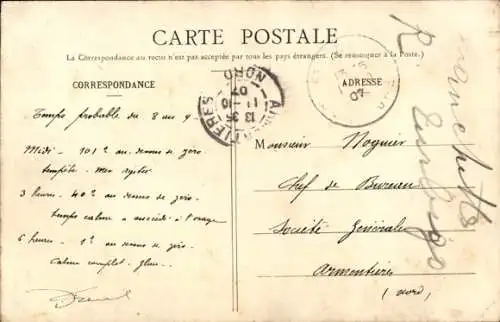 CARTE POSTALE
La Correspondance au recto n'est pas acceptée par tous les pays étrangers. (Se renseigner à la Poste.)
CORRESPONDANCE
Temps probable du 8 au 9
Midi - 101° au-dessus de zéro
tempête.
3 heures - 40° au dessus de zéro
temps calme a succédé à l'orage
6 heures - 1° au dessus de zéro
calme complet.
ARMENTIERES
13 35
11-10
07
NORD
07
ADRESSE
Monsieur Noguier
Chef de Bureau
Société Générale
Armentières
(Nord)